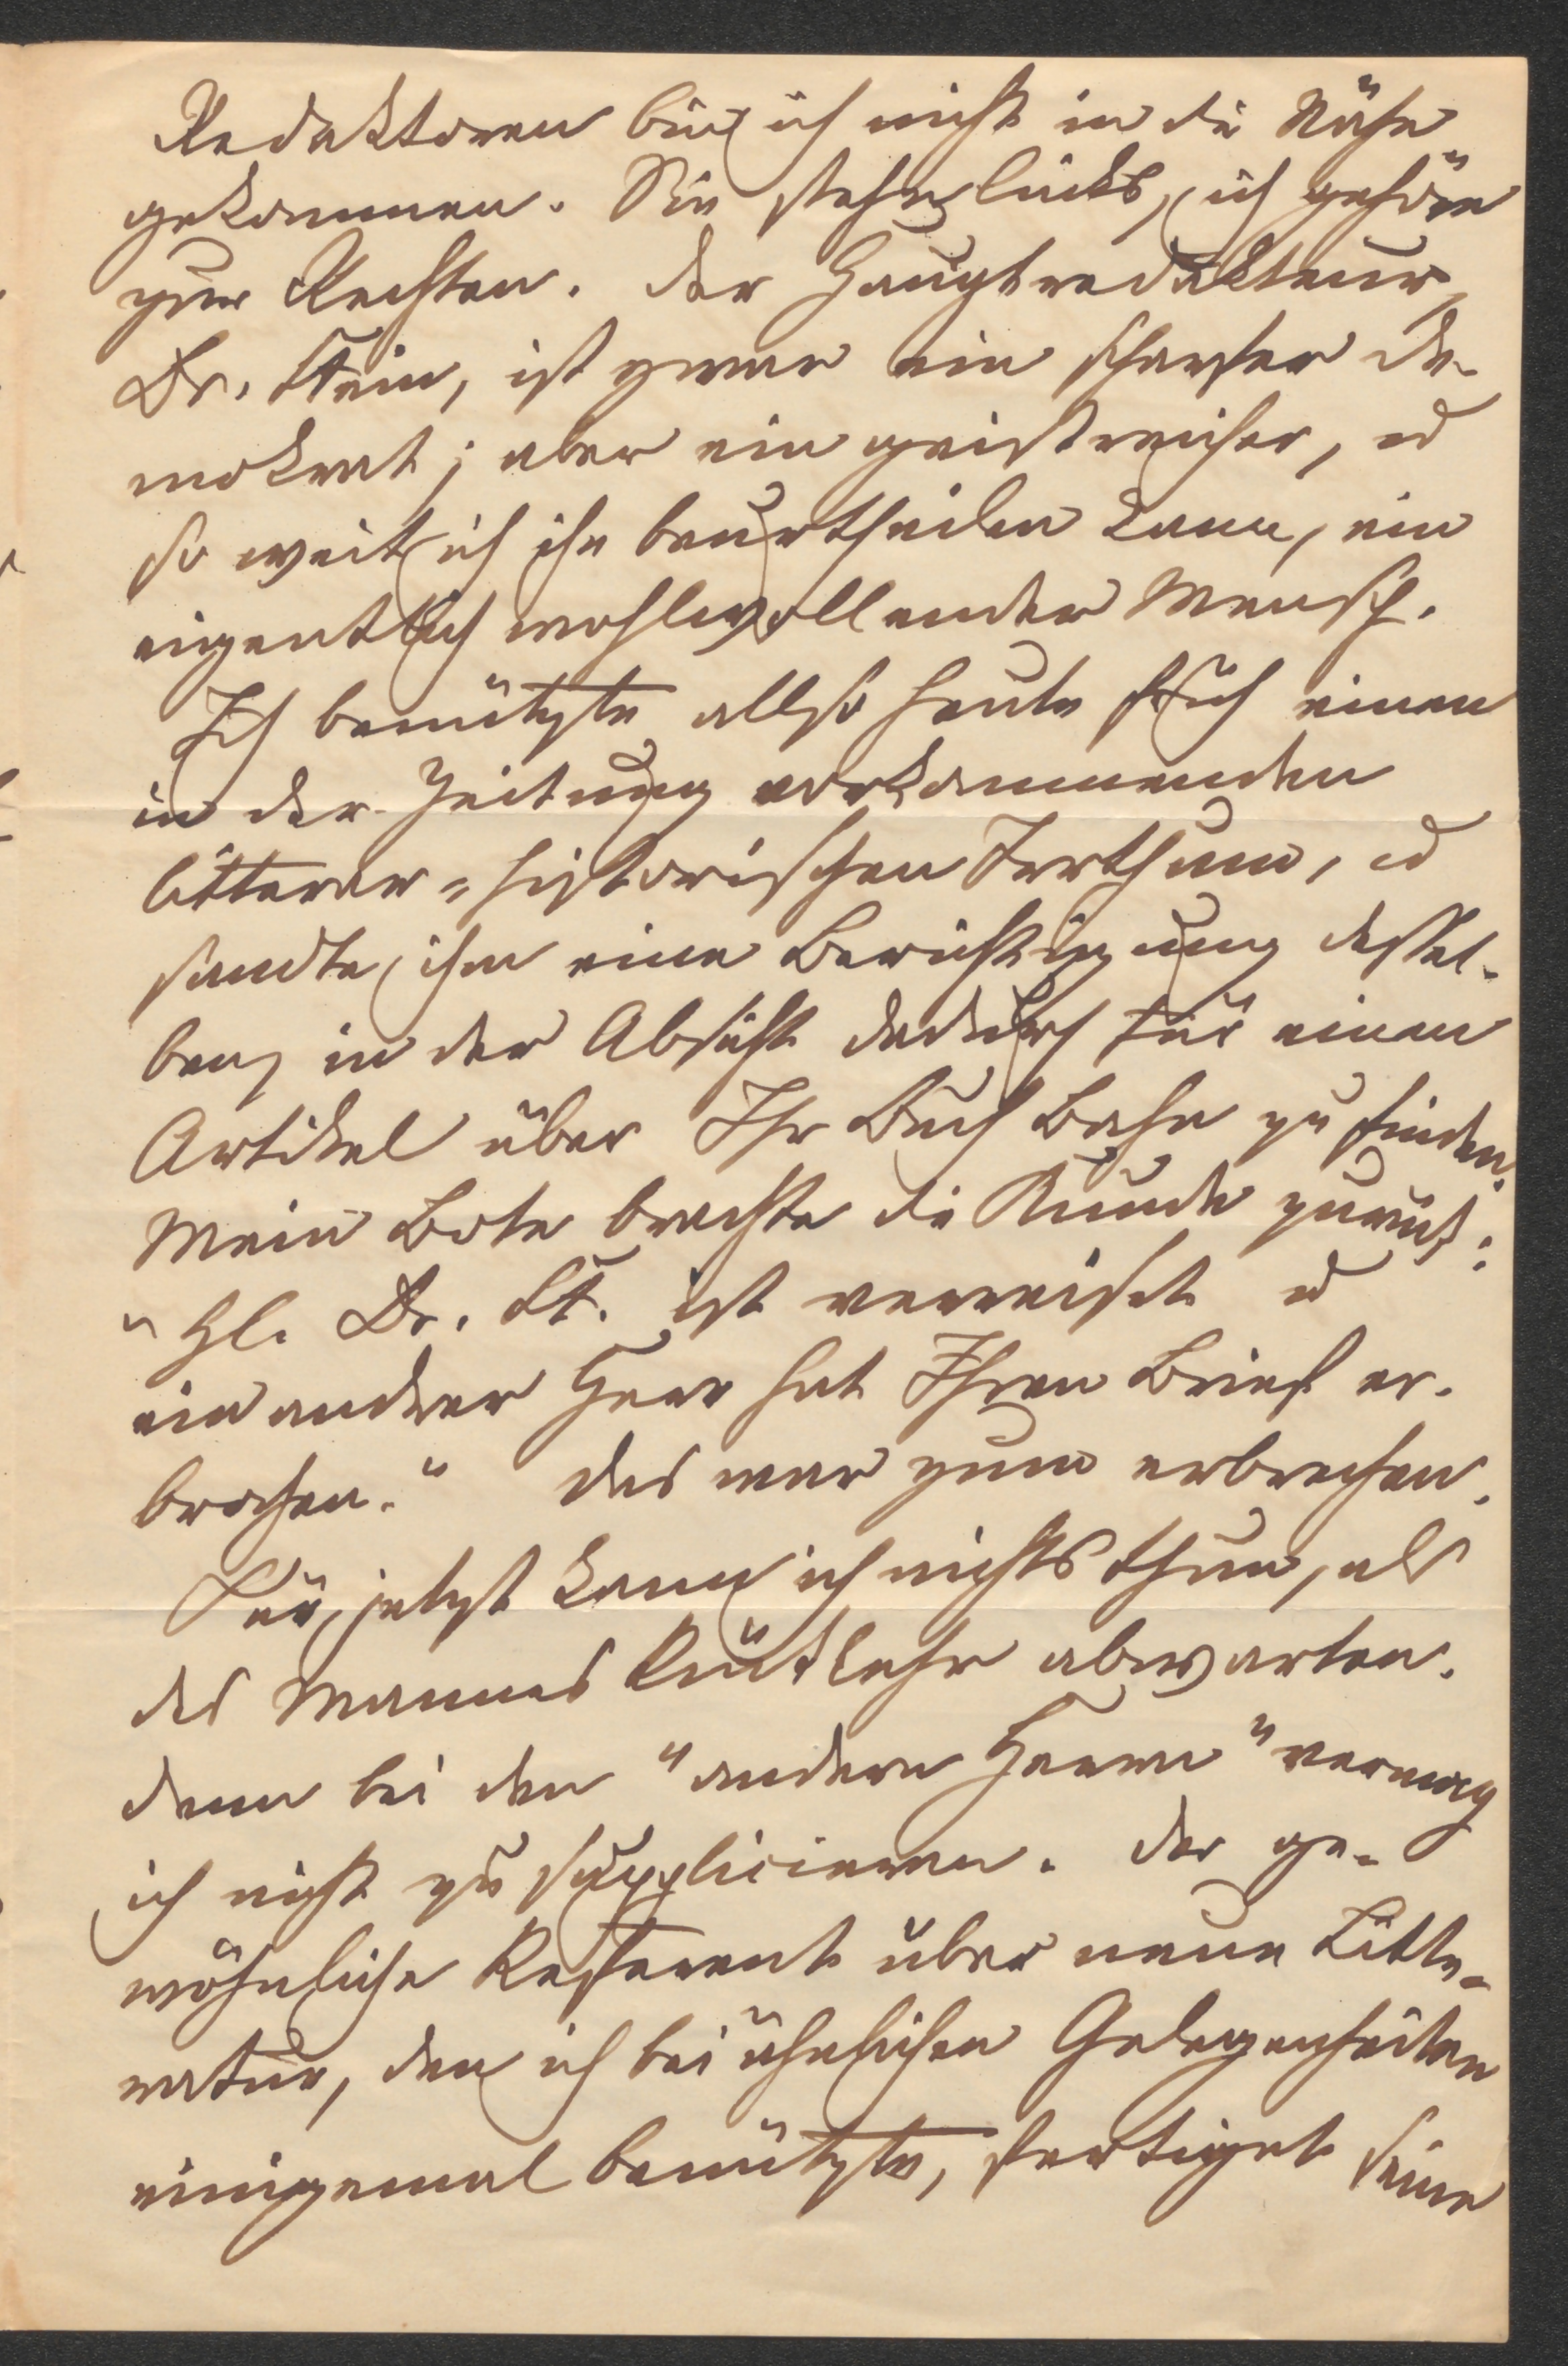 Redaktoren bin ich nicht in die Nähe
gekommen. Sie stehn links, ich gehöre
zur Rechten. Der Hauptredakteur,
Dr. Stein, ist zwar ein scharfer De-
mokrat; aber ein geistreicher, ud
so weit ich ihn beurtheilen kann, ein
eigentlich wohlwollender Mensch.
Ich benützte allso heute früh einen
in der Zeitung vorkommenden
litterar-historischen Irrthum, ud
sandte ihm eine Berichtigung dessel-
ben, in der Absicht dadurch für einen
Artikel über Ihr Buch Bahn zu finden.
Mein Bote brachte die Kunde zurück:
"Hl. Dr. St. ist verreist ud
ein andrer Herr hat Ihren Brief er-
brochen." Das war zum erbrechen.
Für jetzt kann ich nichts thun, als
des Mannes Rückkehr abwarten.
Denn bei den "andern Herrn" vermag
ich nicht zu supplicieren. Der ge-
wöhnliche Referent über neue Litte-
ratur, den ich bei ähnlichen Gelegenheiten
einigemal benützte, fertiget seine